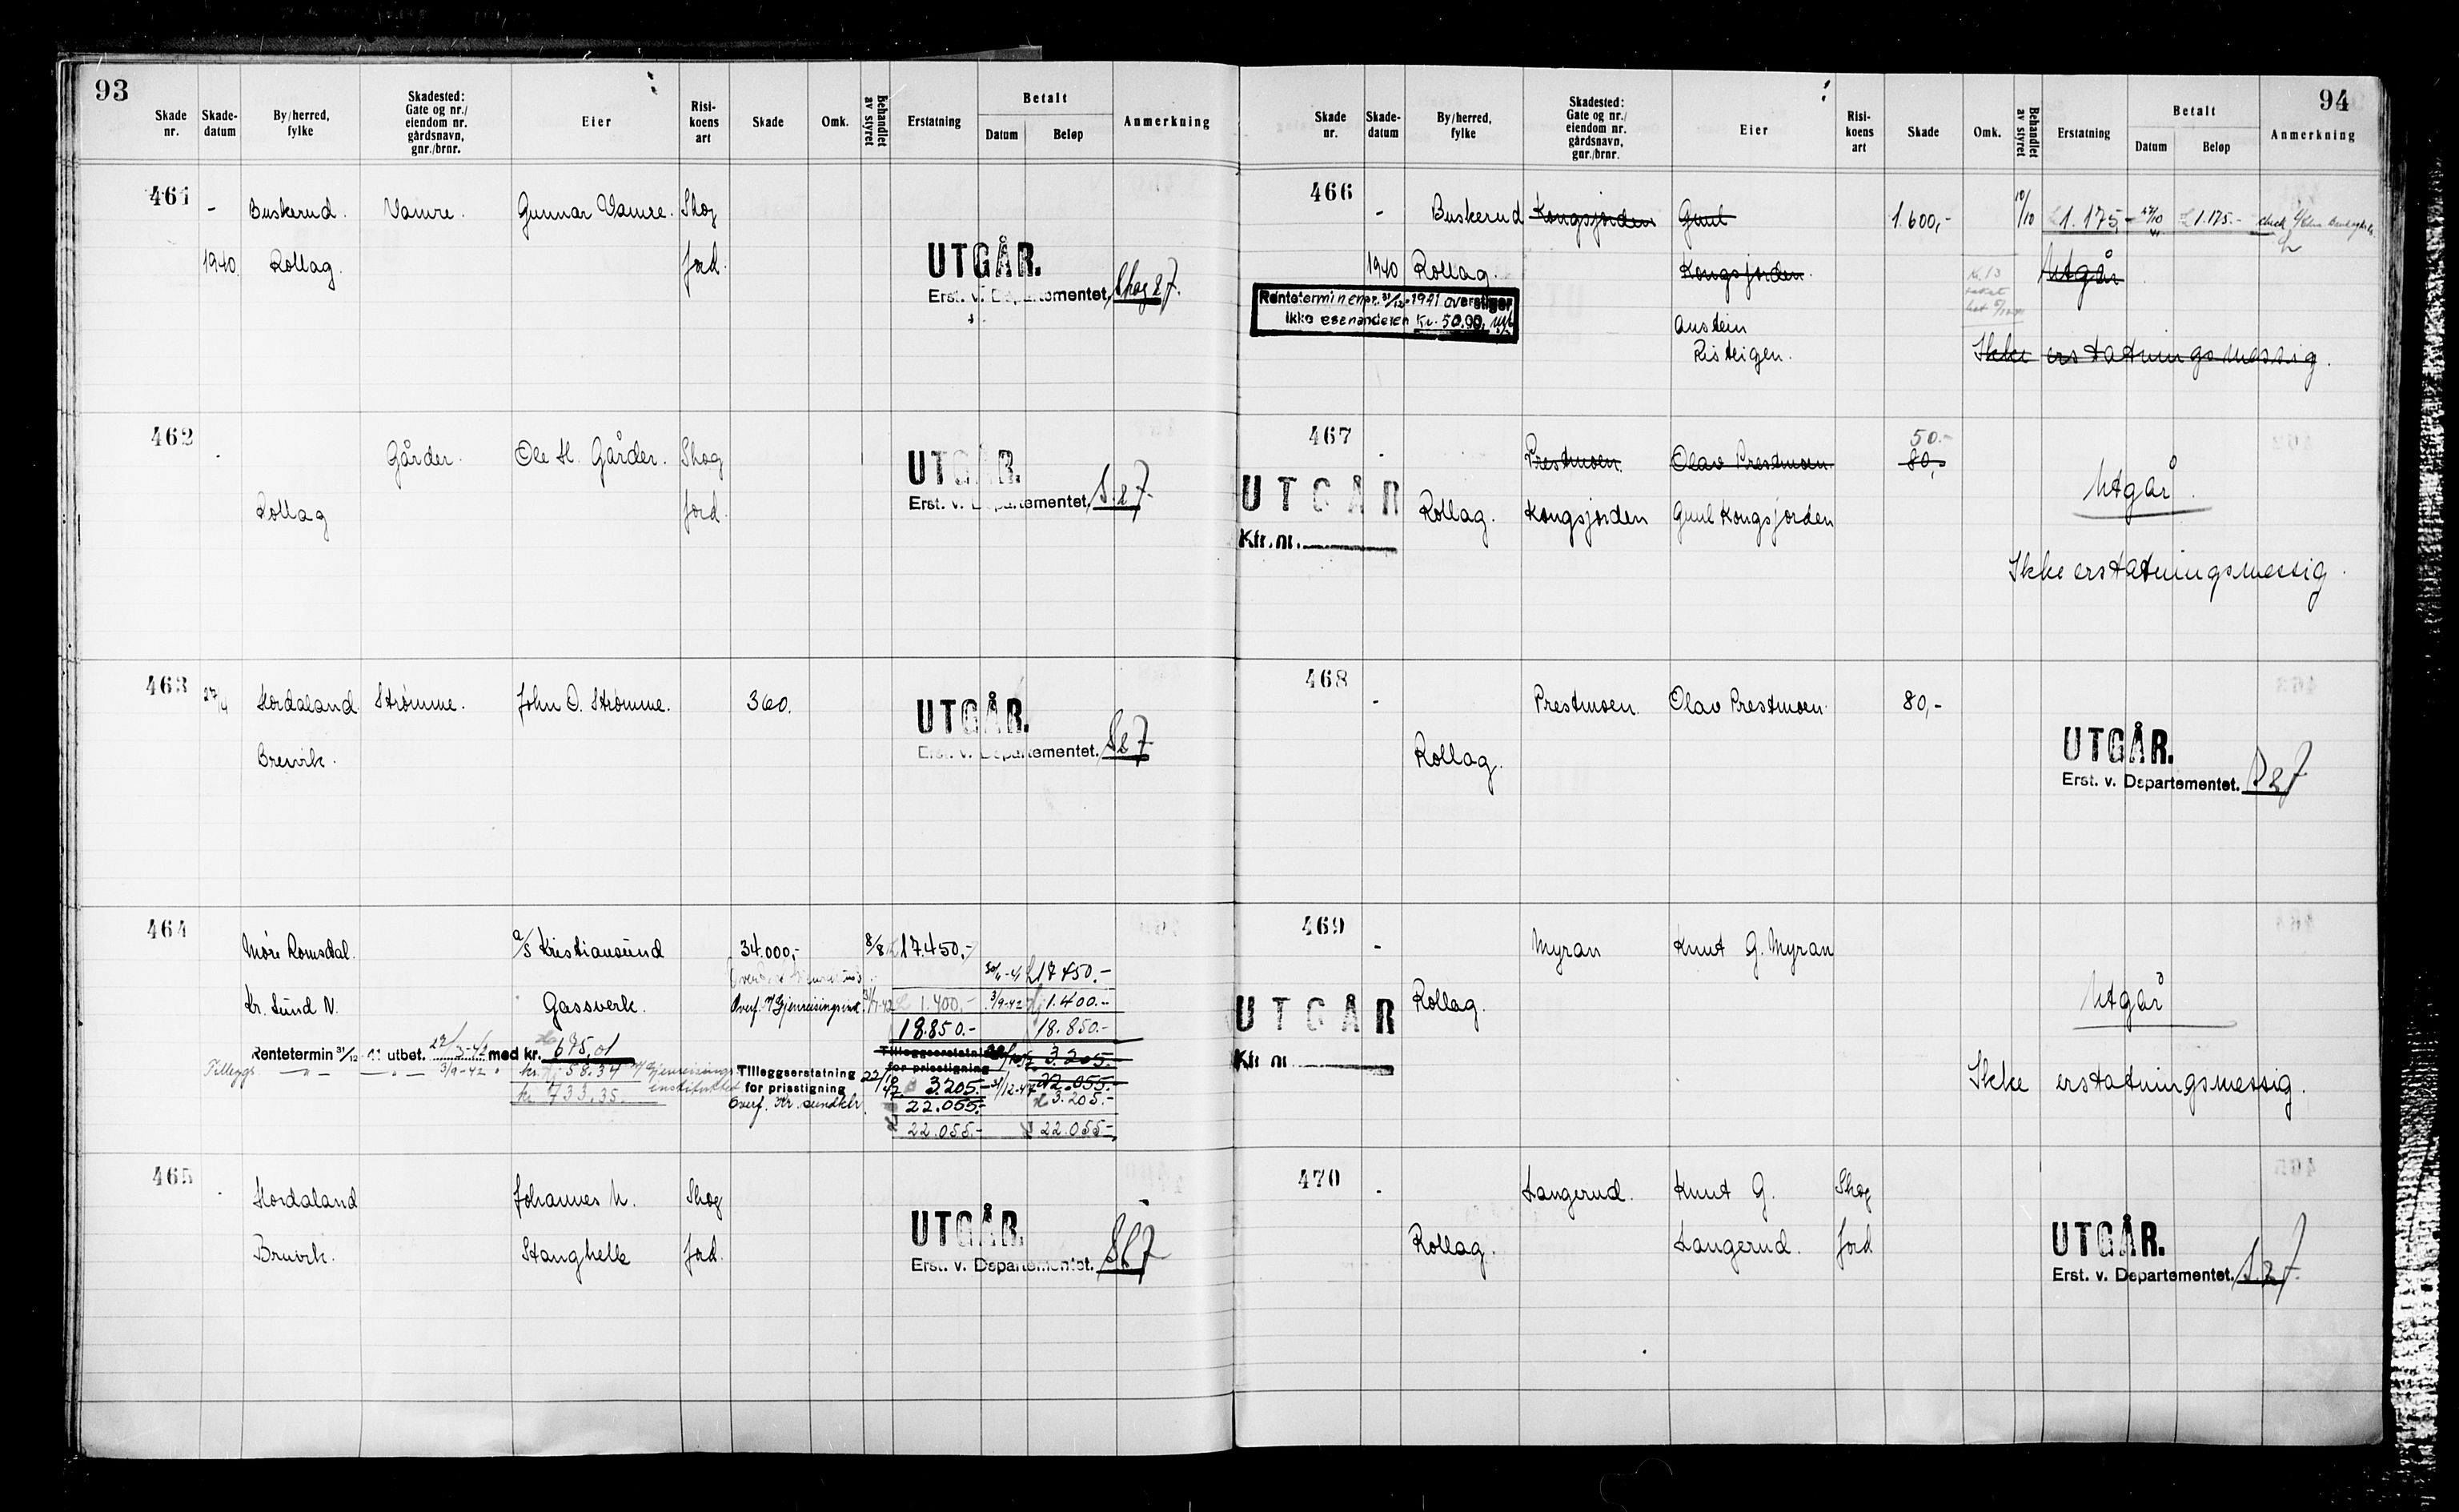 93
Skade nr. Skade-datum By/herred, fylke Skadested: Gate og nr./ eiendom nr. gårdsnavn, gnr./brnr. Eier Risi-koens art Skade Omk. Behandlet av styret Erstatning Betalt Datum Beløp Anmerkning
461 - Buskerud. Vamre. Gunnar Vamre. Skog
1940 Rollag. Jord.
UTGÅR.
Erst. v. Departementet.
462 - Gårder. Ole H. Gårder. Skog
Rollag Jord.
UTGÅR.
Erst. v. Departementet.
463 27/4 Hordaland Strømme. John O. Strømme. 360.
Bruvik.
UTGÅR.
Erst. v. Departementet.
464 Møre Romsdal. a/s Kristiansund 34.000,- 8/8 17.450,-
17450.-
Kr. Sund N. Gassverk. Overf. 1.400.- 3/9-42 1.400.-
18.850.- 18.850.-
Rentetermin 31/12-41 utbet. med kr. 675,01
Tilleggs. 3/9-42 kr. 58.34
kr. 733.35
Tilleggserstatning for prisstigning 3.205.-
Tilleggserstatning for prisstigning 22/10 42 3205.- 22.055.-
22.055.- 3.205.-
22.055.- 22.055.-
465 - Hordaland Johannes N. Skog
Bruvik. Stanghelle Jord.
UTGÅR.
Erst. v. Departementet.
94
Skade nr. Skade-datum By/herred, fylke Skadested: Gate og nr./ eiendom nr. gårdsnavn, gnr./brnr. Eier Risi-koens art Skade Omk. Behandlet av styret Erstatning Betalt Datum Beløp Anmerkning
466 - Buskerud Kongsjorden Gunl 1.600,- 10/10 1.175,- 1.175.-
1940 Rollag. Kongsjorden. Utgår
Renteterminen pr. 31/12-1941 overstiger
ikke egenandelen Kr. 50.00,
Austein
Risteigen.
Ikke erstatningsmessig.
467 - Prestmoen. Olav Prestmoen. 50.-
80,-
UTGÅR Rollag. Kongsjorden Gunl Kongsjorden Utgår.
Kfr. nr.
Ikke erstatningsmessig.
468 - Prestmoen. Olav Prestmoen. 80,-
Rollag.
UTGÅR.
Erst. v. Departementet.
469 - Myran Knut G. Myran
UTGÅR Rollag. Utgår
Kfr. nr.
Ikke erstatningsmessig.
470 - Langerud. Knut G. Skog
Rollag. Langerud. Jord
UTGÅR.
Erst. v. Departementet.